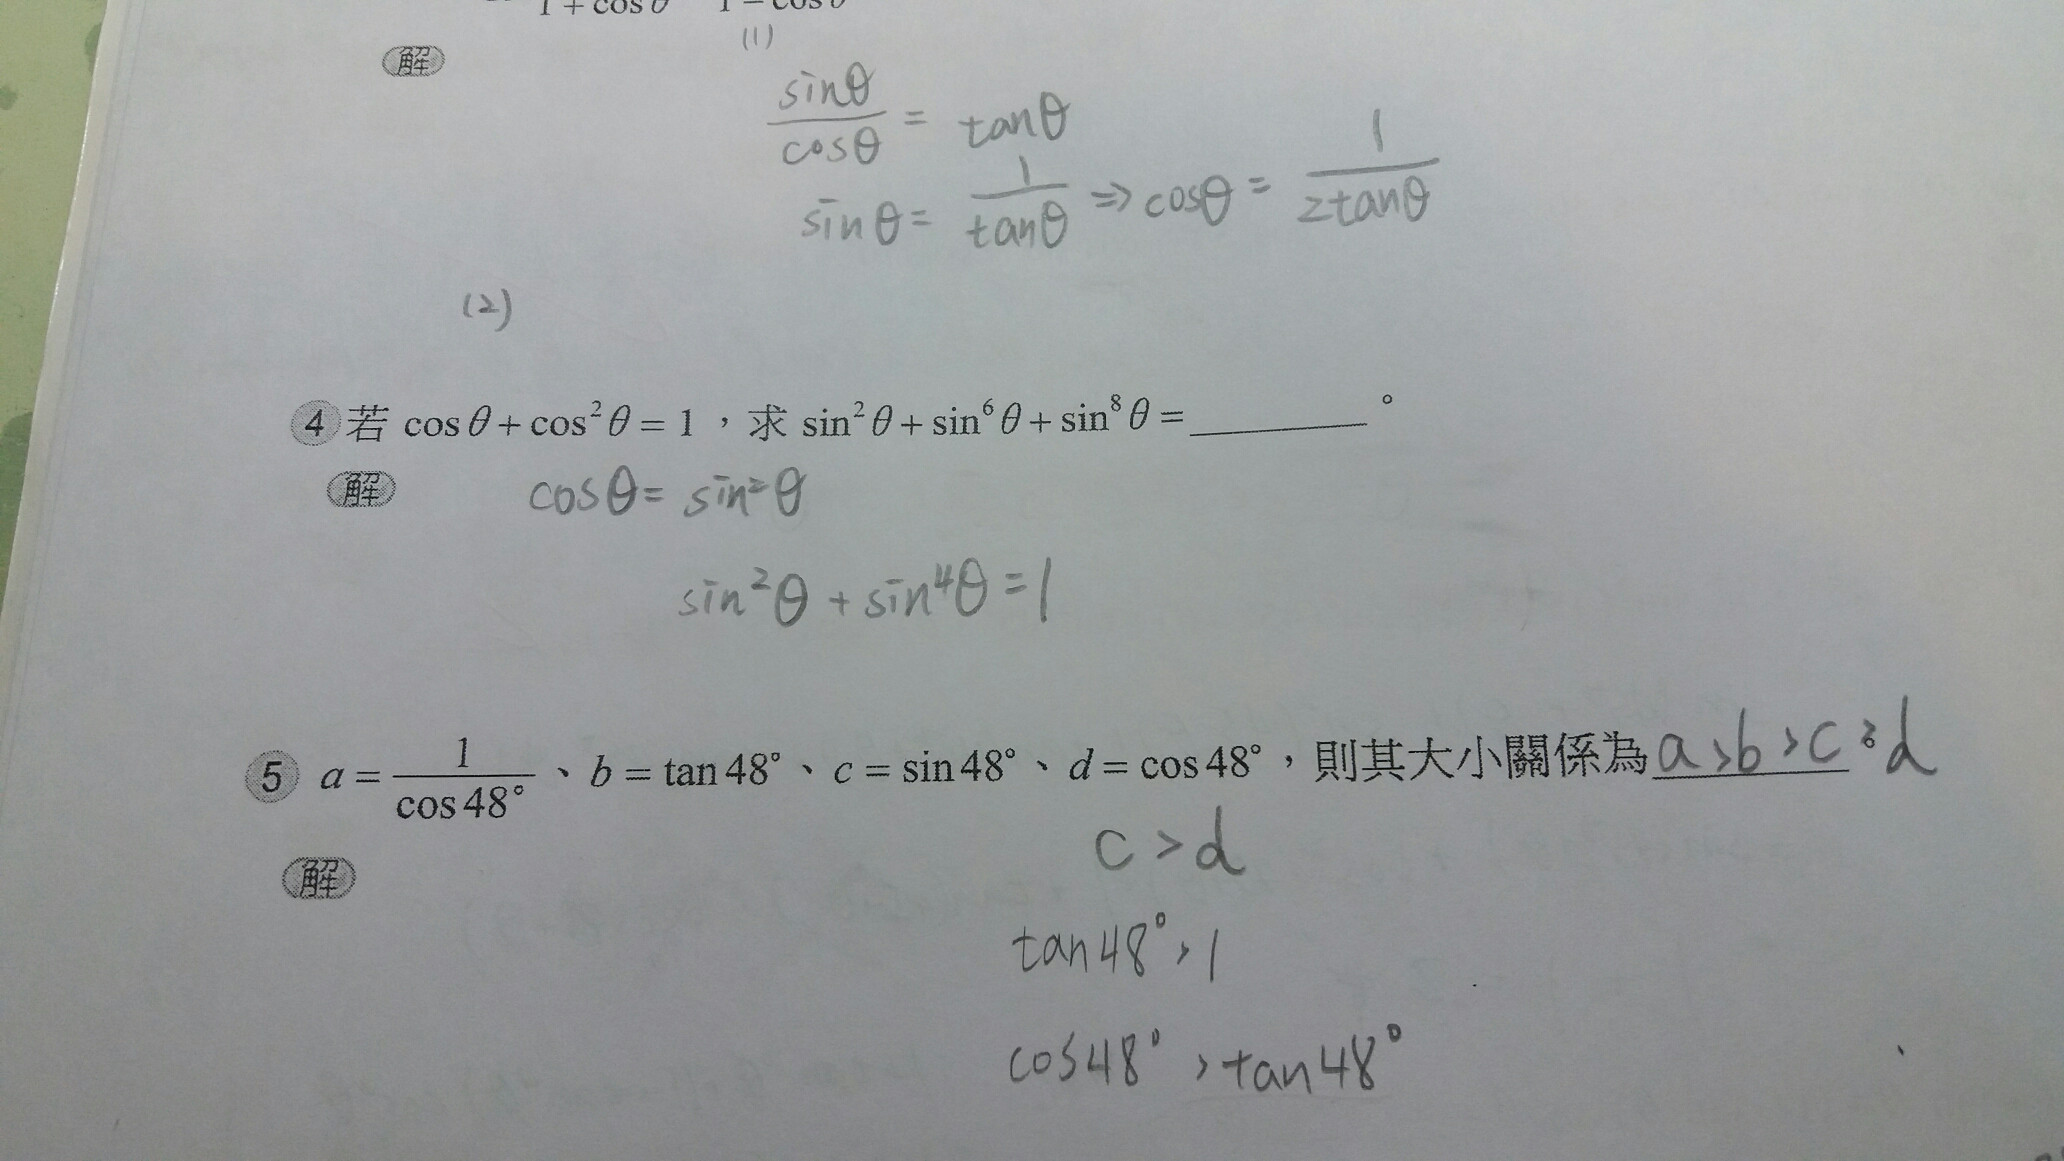 1 + cos θ   1 − cos θ
(1)
解
sinθ/cosθ = tanθ
sinθ = 1/tanθ ⇒ cosθ = 1/2tanθ
(2)
4 若 cos θ + cos² θ = 1，求 sin² θ + sin⁶ θ + sin⁸ θ = ________。
解 cosθ = sin²θ
sin²θ + sin⁴θ = 1
5 a = 1/cos 48°、b = tan 48°、c = sin 48°、d = cos 48°，則其大小關係為 a > b > c > d
c > d
解
tan48° > 1
cos48° > tan48°